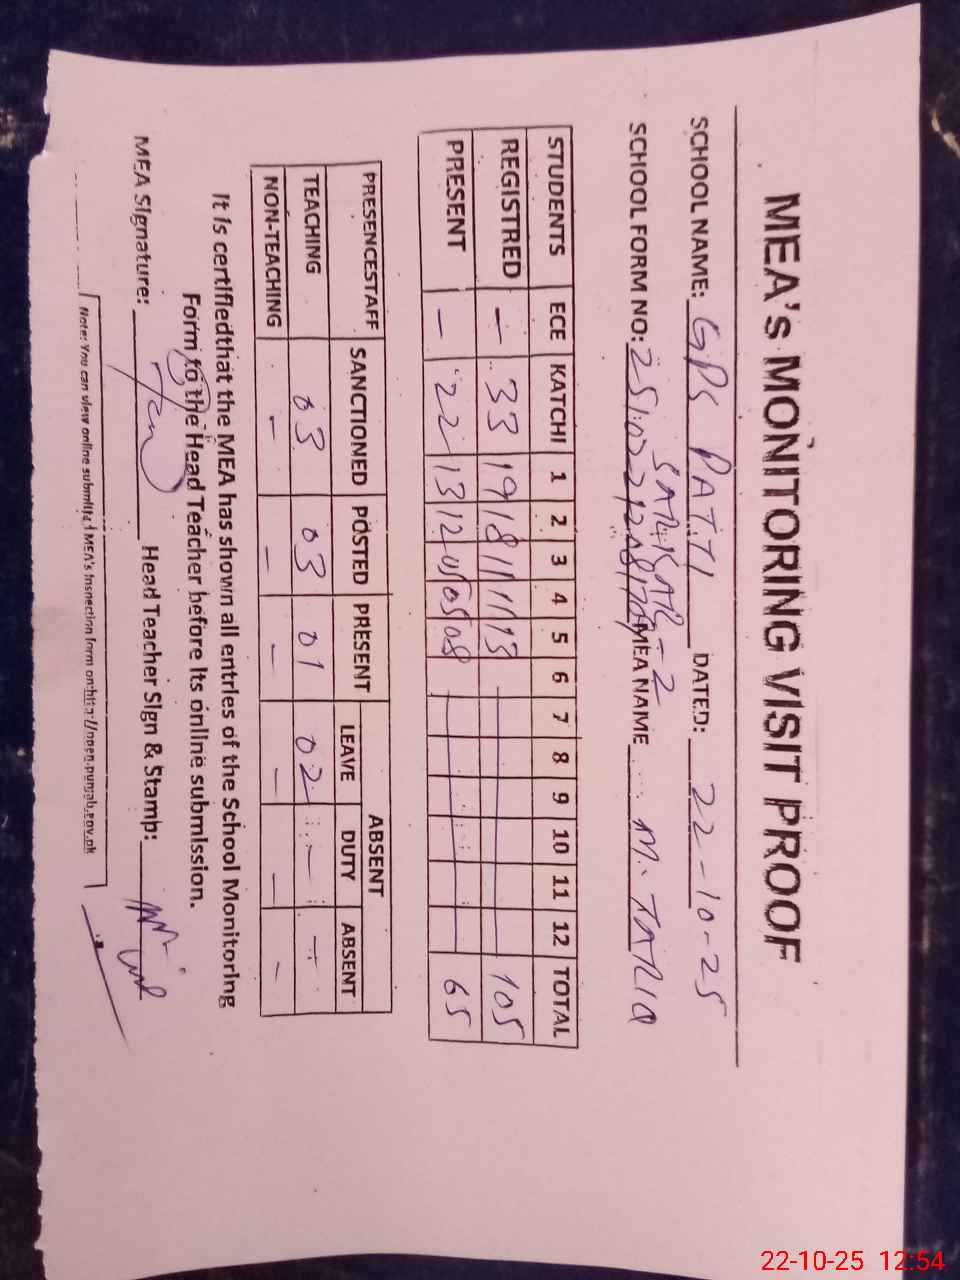 MEA's MONITORING VISIT PROOF
SCHOOL NAME: GPS PATTI DATED: 22-10-25
SARKAR-2
SCHOOL FORM NO: MEA NAME M. TARIQ
STUDENTS ECE KATCHI 1 2 3 4 5 6 7 8 9 10 11 12 TOTAL
REGISTRED — 33 19 18 11 11 13 105
PRESENT — 22 13 12 05 05 08 65
ABSENT
PRESENCESTAFF SANCTIONED POSTED PRESENT LEAVE DUTY ABSENT
TEACHING 03 03 01 02 — —
NON-TEACHING — — — — — —
It is certifiedthat the MEA has shown all entries of the School Monitoring
Form to the Head Teacher before its online submission.
MEA Signature: Head Teacher Sign & Stamp:
Note: You can view online submitted MEA's Inspection form on:http://open.punjab.gov.pk
22-10-25 12:54